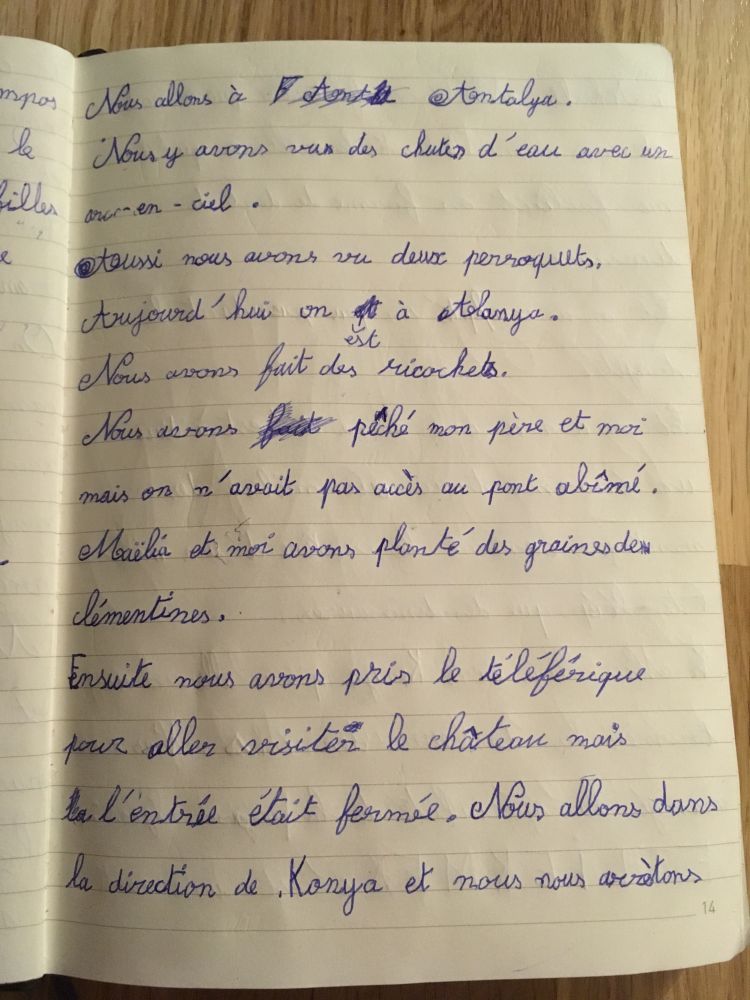 mpos
le
filles
e
Nous allons à Antalya.
Nous y avons vus des chutes d'eau avec un
arc-en-ciel.
Aussi nous avons vu deux perroquets.
Aujourd'hui on est à Alanya.
Nous avons fait des ricochets.
Nous avons pêché mon père et moi
mais on n'avait pas accès au pont abîmé.
Maëlia et moi avons planté des graines de
clémentines.
Ensuite nous avons pris le téléférique
pour aller visiter le château mais
l'entrée était fermée. Nous allons dans
la direction de Konya et nous nous arrètons
14